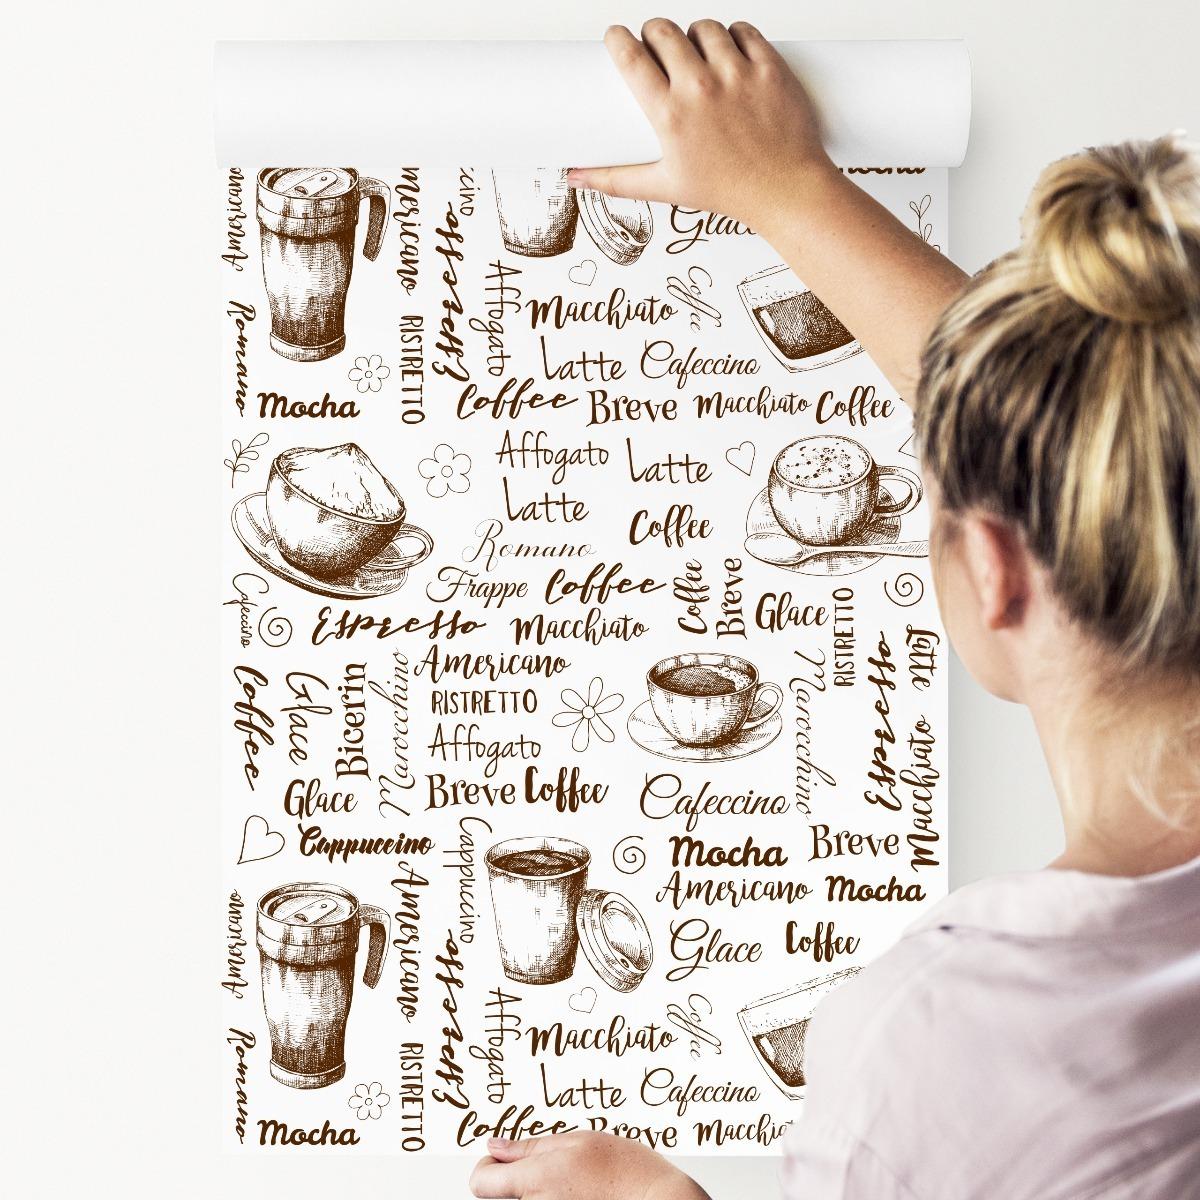 Mocha
Americano
Americano
ccino
Espresso
Glace
Affogato
Macchiato
Coffee
Romano
RISTRETTO
Latte
Cafeccino
Coffee
Breve
Macchiato
Coffee
Mocha
Affogato
Latte
Latte
Coffee
Romano
Frappe
Coffee
Coffee
Breve
Glace
RISTRETTO
Cafeccino
Espresso
Macchiato
Latte
Americano
Coffee
Glace
Bicerin
Marocchino
RISTRETTO
Marocchino
Espresso
Macchiato
Affogato
Glace
Breve
Coffee
Cafeccino
Cappuccino
Cappuccino
Mocha
Breve
Americano
Mocha
Americano
Americano
Espresso
Glace
Coffee
Affogato
Macchiato
Coffee
Romano
RISTRETTO
Latte
Cafeccino
Mocha
Coffee
Breve
Macchiat